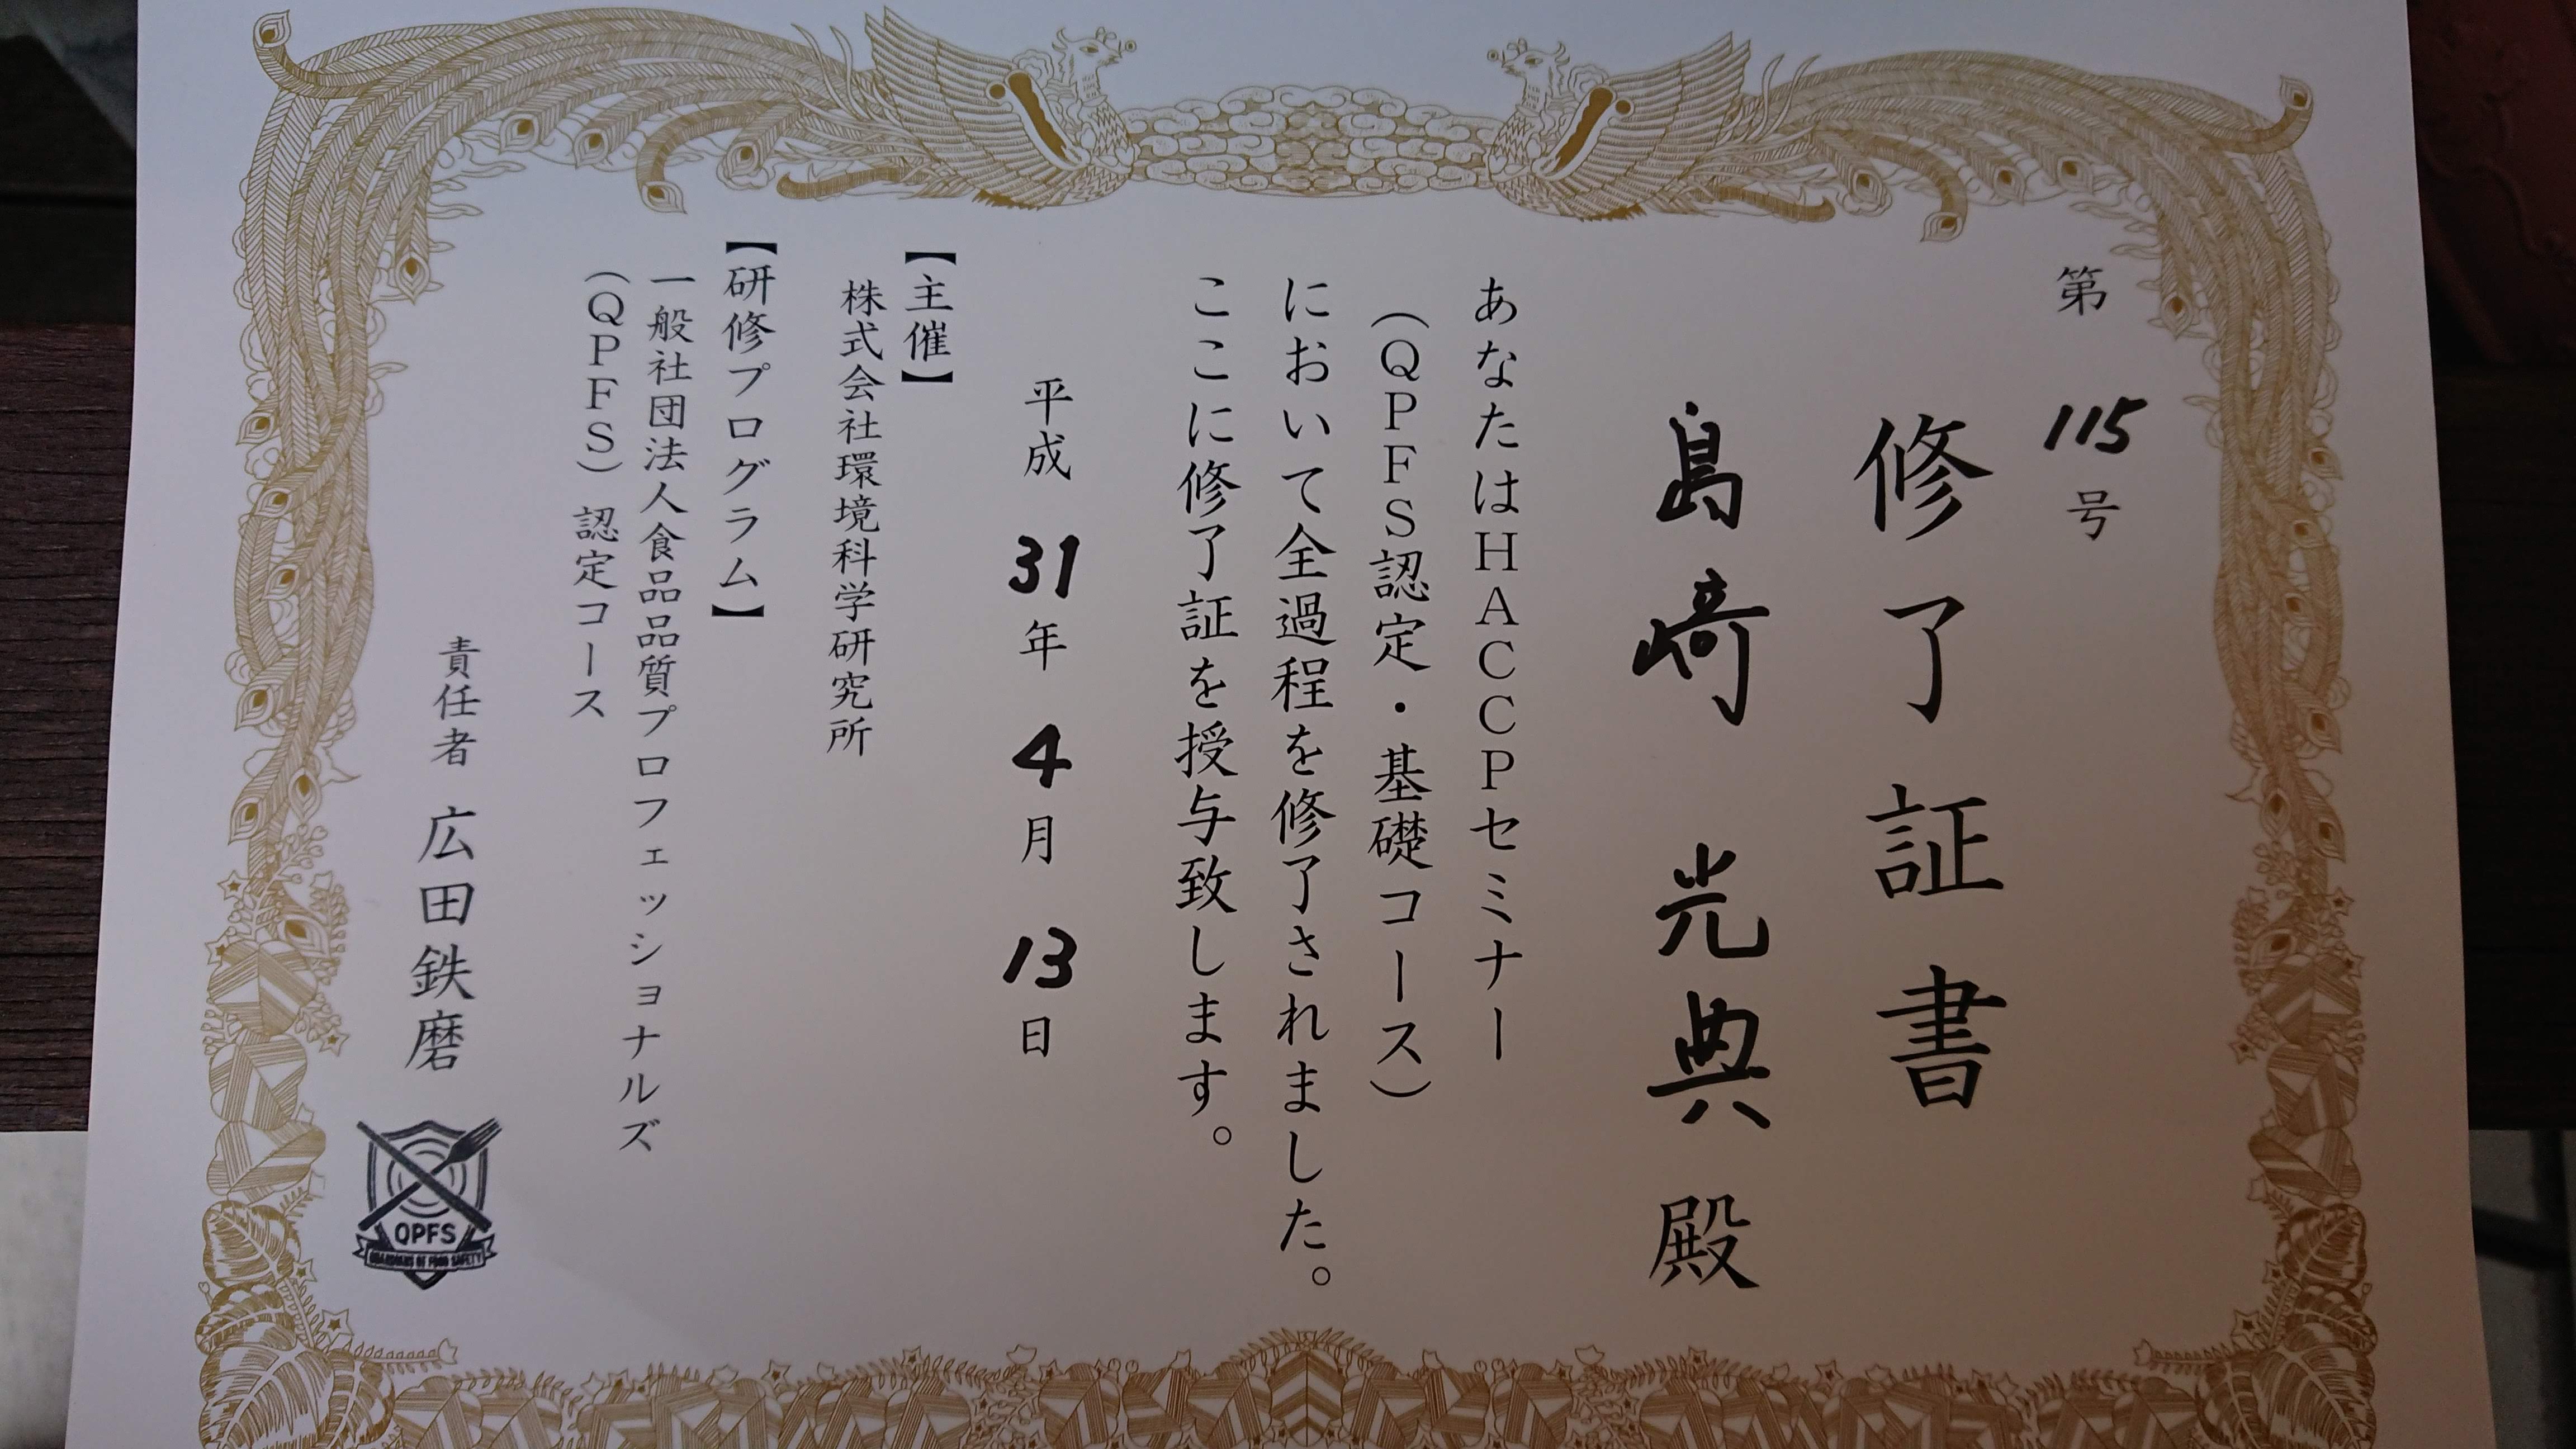 第 115 号
修了証書
島﨑 光典 殿
あなたはHACCPセミナー
（QPFS認定・基礎コース）
において全過程を修了されました。
ここに修了証を授与致します。
平成 31 年 4 月 13 日
【主催】
株式会社環境科学研究所
【研修プログラム】
一般社団法人食品品質プロフェッショナルズ
（QPFS）認定コース
責任者 広田鉄磨
QPFS
GUARDIANS OF FOOD SAFETY